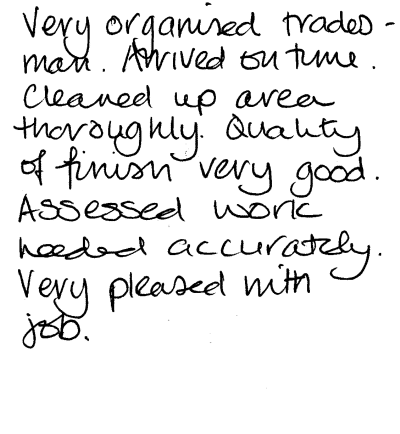 Very organised trades-
man. Arrived on time.
Cleaned up area
thoroughly. Quality
of finish very good.
Assessed work
needed accurately.
Very pleased with
job.